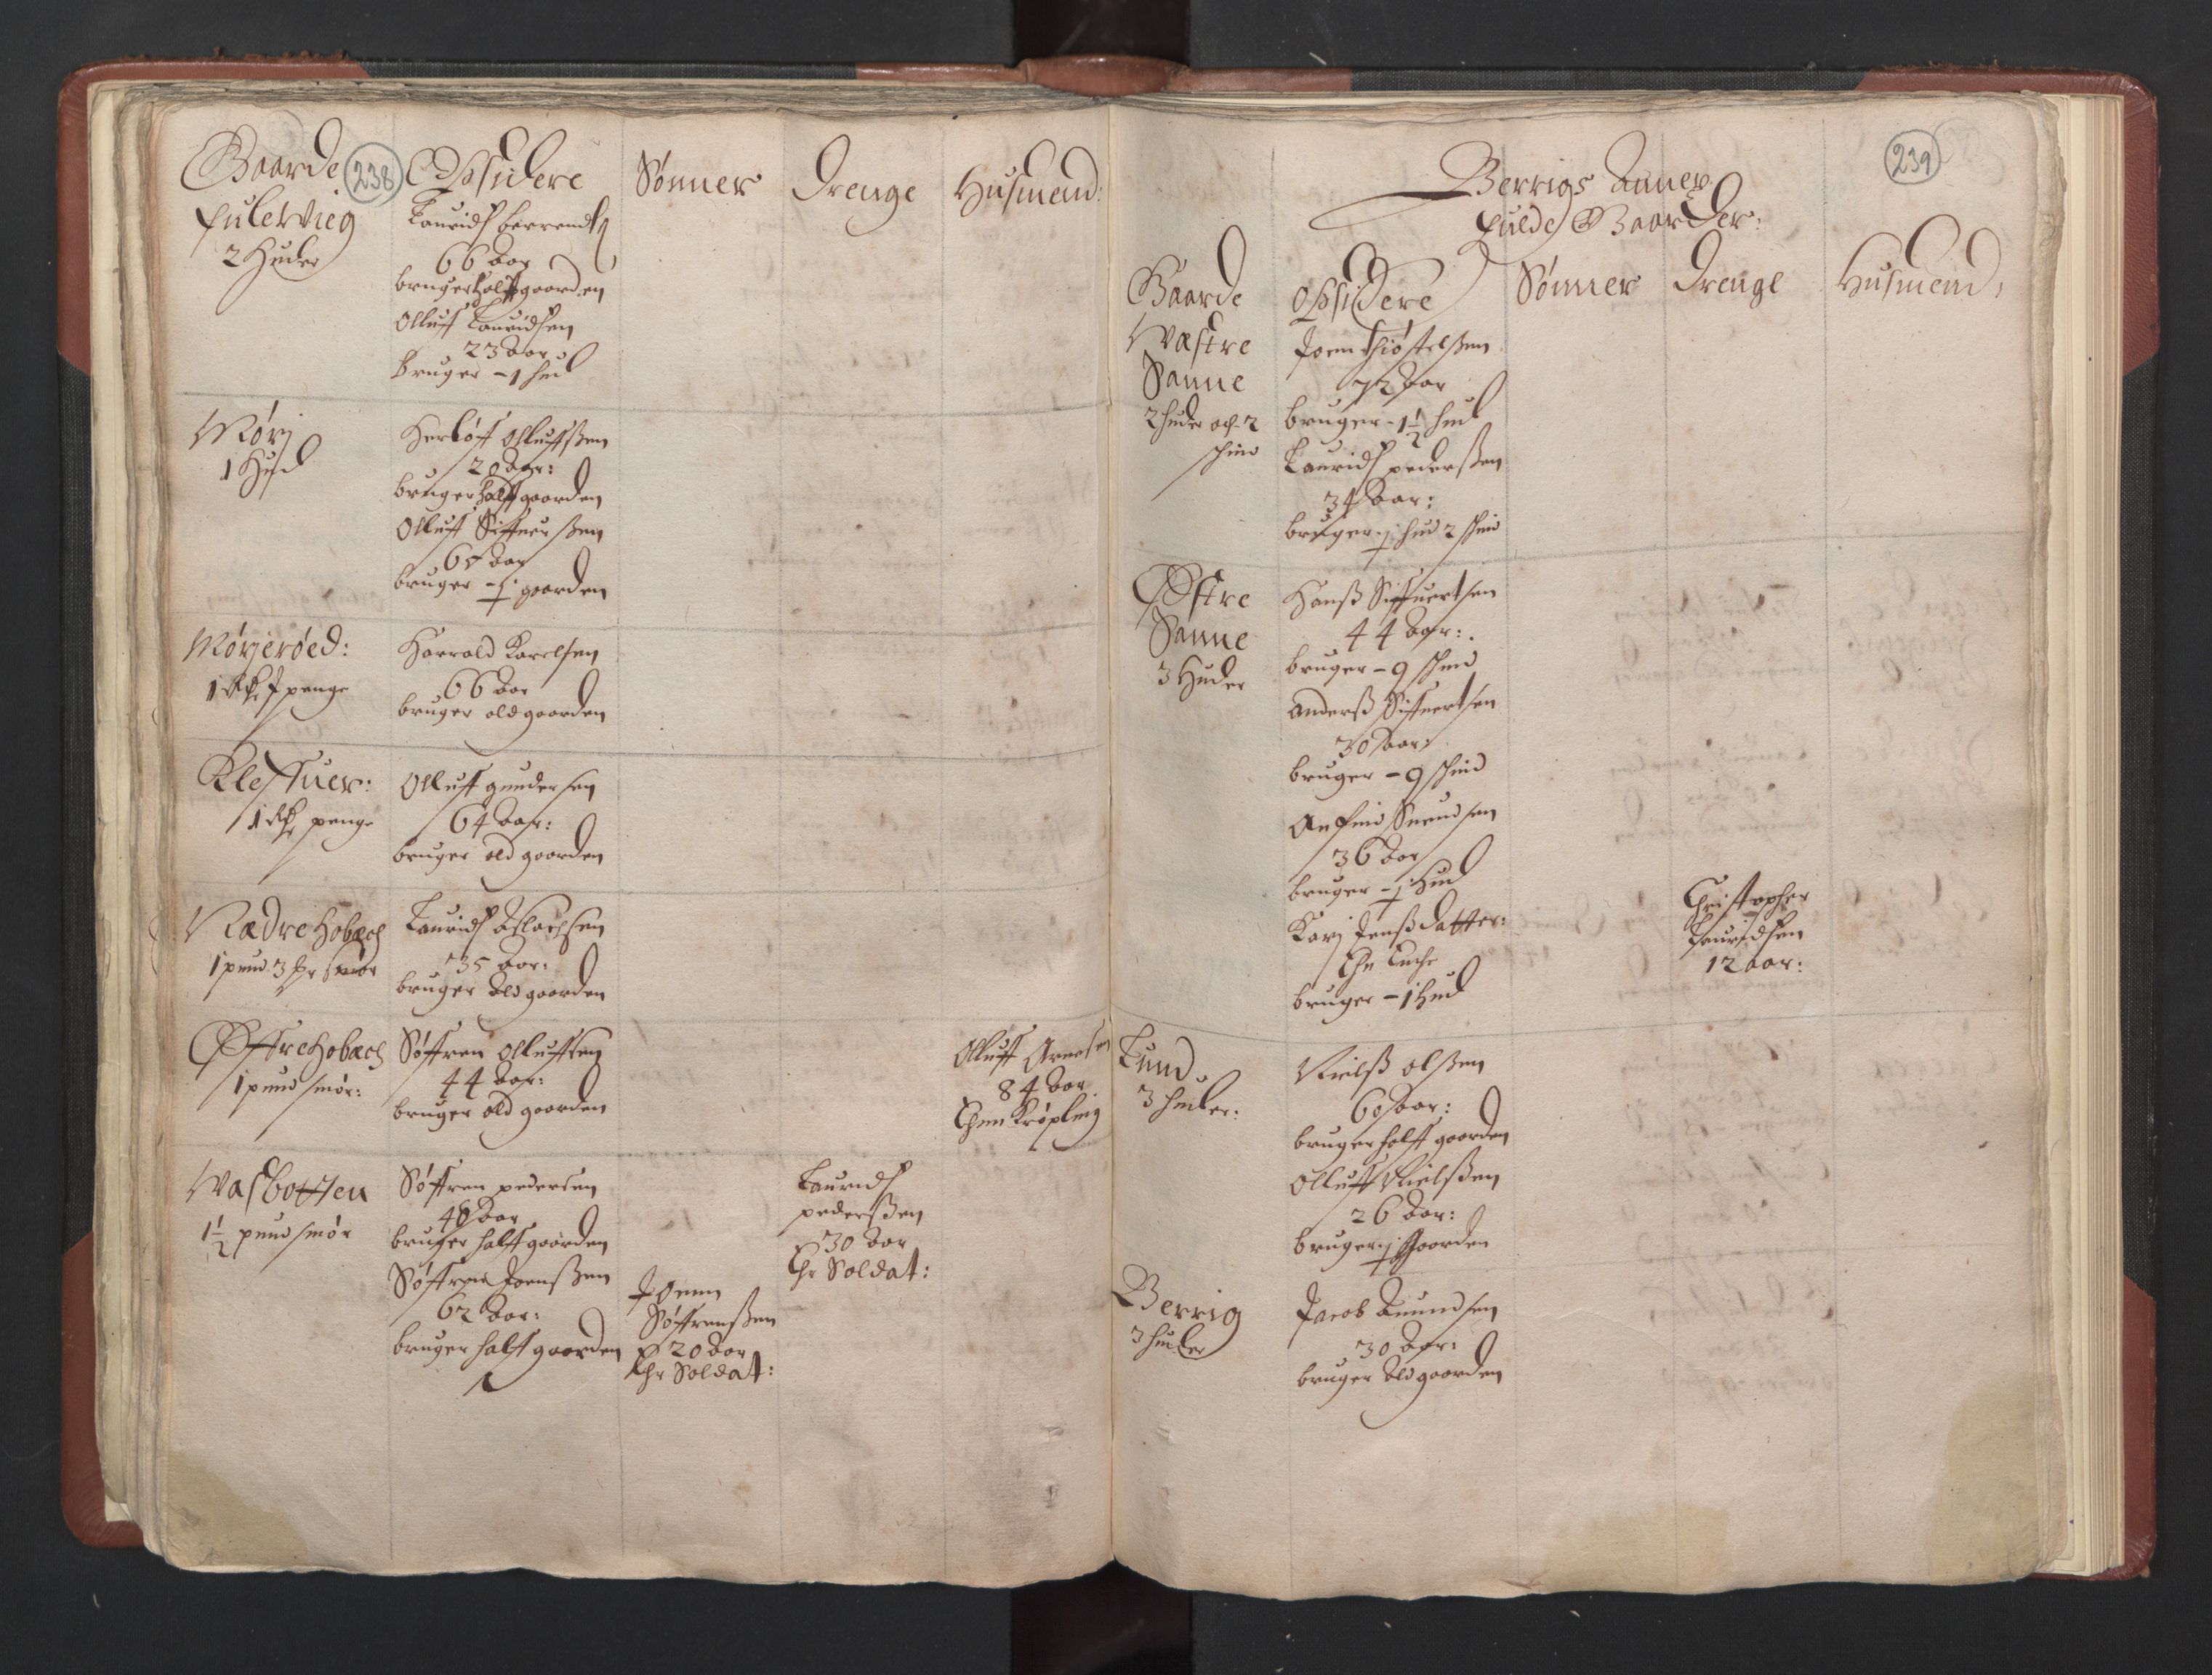 238
Gaarde
Opsidere
Sønner
Drenge
Husmend:
Fulervieg
2 Huder
Lauridtz
66 Aar
bruger halff gaarden
Olluff Lauridsen
23 Aar
bruger - 1 hud
Mørj
1 Hud
Herløff Olluffssen
20 Aar:
bruger halff gaarden
Olluff Siffuerssen
60 Aar
bruger - gaarden
Mørjerøed:
penge
Harrald Karelsen
66 Aar
bruger ald gaarden
Kleffuer:
penge
Olluff gundersen
64 Aar:
bruger ald gaarden
Nædre Hobæch
1 pund 3 smør
Lauridtz Aslachsen
35 Aar:
bruger Ald gaarden
Øffre Hobæch
1 pund smør:
Søffren Olluffsen
44 Aar:
bruger ald gaarden
Olluff Arnesen
84 Aar
Ehnn Krøpling
Wasbotten
1½ pund smør
Søffren pedersen
40 Aar
bruger halff gaarden
Søffren Joenssen
62 Aar:
bruger halff gaarden
Joenn
Søffrenssen
20 Aar
Ehr Soldat:
Lauridtz
pederssen
30 Aar
Ehr Soldat:
239
Berrigs Annex
fulde Gaarder:
Gaarde
Opsidere
Sønner
Drenge
Husmend:
Wæstre
Sanne
2 huder och 2
schind
Joen Thiøstelssen
72 Aar
bruger - 1½ hud
Lauridtz pederssen
34 Aar:
bruger hud 2 schind
Østre
Sanne
3 Huder
Hanss Siffuertsen
44 Aar:
bruger - 9 schind
Anderss Siffuertsen
30 Aar:
bruger - 9 schind
Anfind Suendsen
36 Aar
bruger - Hud
Karj Jenssdatter:
Ehn Encke
bruger - 1 hud
Christopher
Lauridsen
12 aar:
Lund
3 huder:
Nielss olssen
60 Aar:
bruger halff gaarden
Olluff Nielssen
26 Aar:
bruger gaarden
Berrig
3 huder
Jacob Amundsen
30 Aar:
bruger Ald gaarden